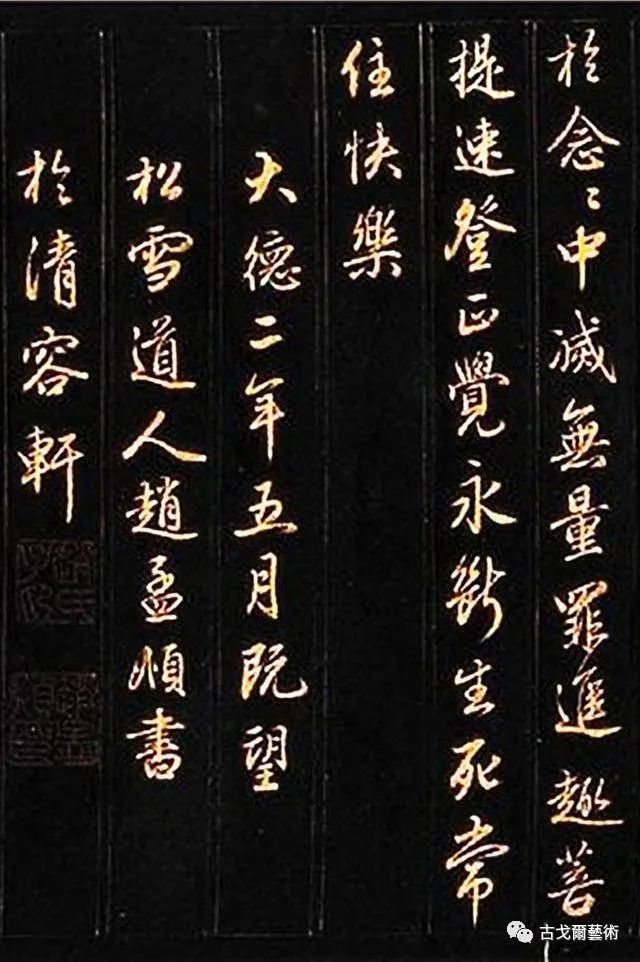 於念〻中滅無量罪進趣菩
提速登正覺永斷生死常
住快樂
大德二年五月既望
松雪道人趙孟頫書
於清容軒
古戈爾藝術